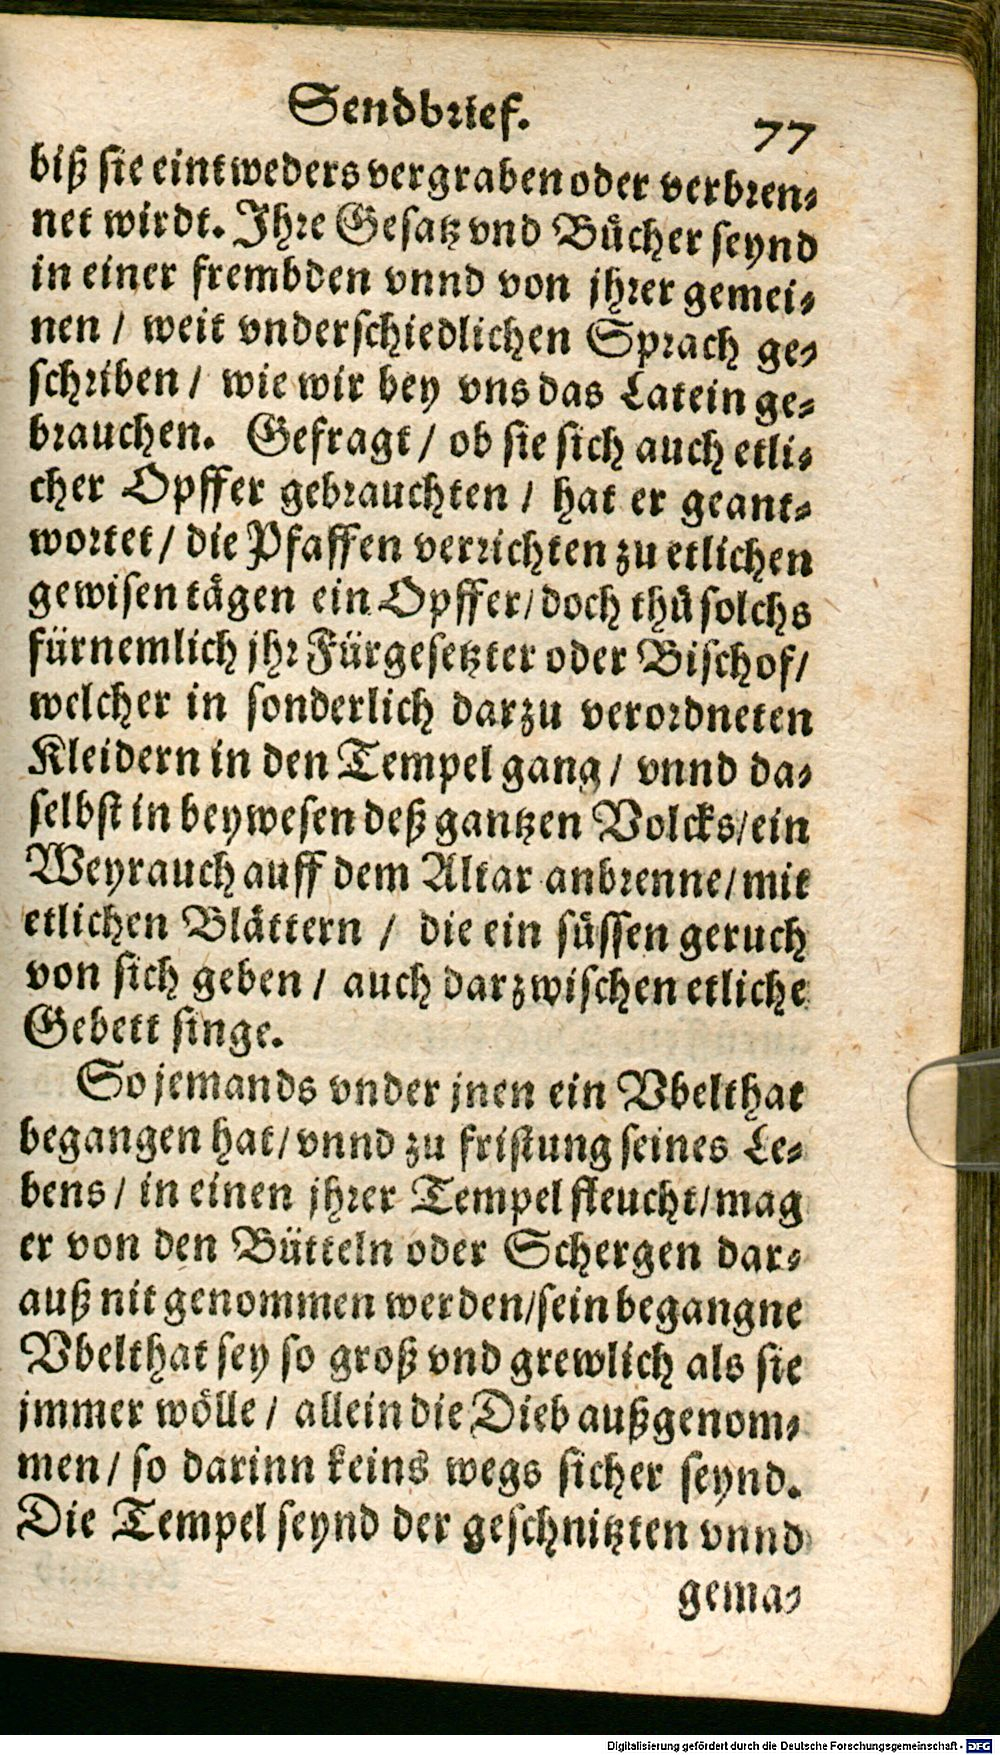 Sendbrief. 77
biß sie eintweders vergraben oder verbren-
net wirdt. Ihre Gesatz vnd Bücher seynd
in einer frembden vnnd von jhrer gemei-
nen / weit vnderschiedlichen Sprach ge-
schriben / wie wir bey vns das Latein ge-
brauchen. Gefragt / ob sie sich auch etli-
cher Opffer gebrauchten / hat er geant-
wortet / die Pfaffen verrichten zu etlichen
gewisen tägen ein Opffer / doch thů solchs
fürnemlich jhr Fürgesetzter oder Bischof /
welcher in sonderlich darzu verordneten
Kleidern in den Tempel gang / vnnd da-
selbst in beywesen deß gantzen Volcks / ein
Weyrauch auff dem Altar anbrenne / mit
etlichen Blättern / die ein süssen geruch
von sich geben / auch darzwischen etliche
Gebett singe.
So jemands vnder jnen ein Vbelthat
begangen hat / vnnd zu fristung seines Le-
bens / in einen jhrer Tempel fleucht / mag
er von den Bütteln oder Schergen dar-
auß nit genommen werden / sein begangne
Vbelthat sey so groß vnd grewlich als sie
jmmer wölle / allein die Dieb außgenom-
men / so darinn keins wegs sicher seynd.
Die Tempel seynd der geschnitzten vnnd
gema-
Digitalisierung gefördert durch die Deutsche Forschungsgemeinschaft - DFG